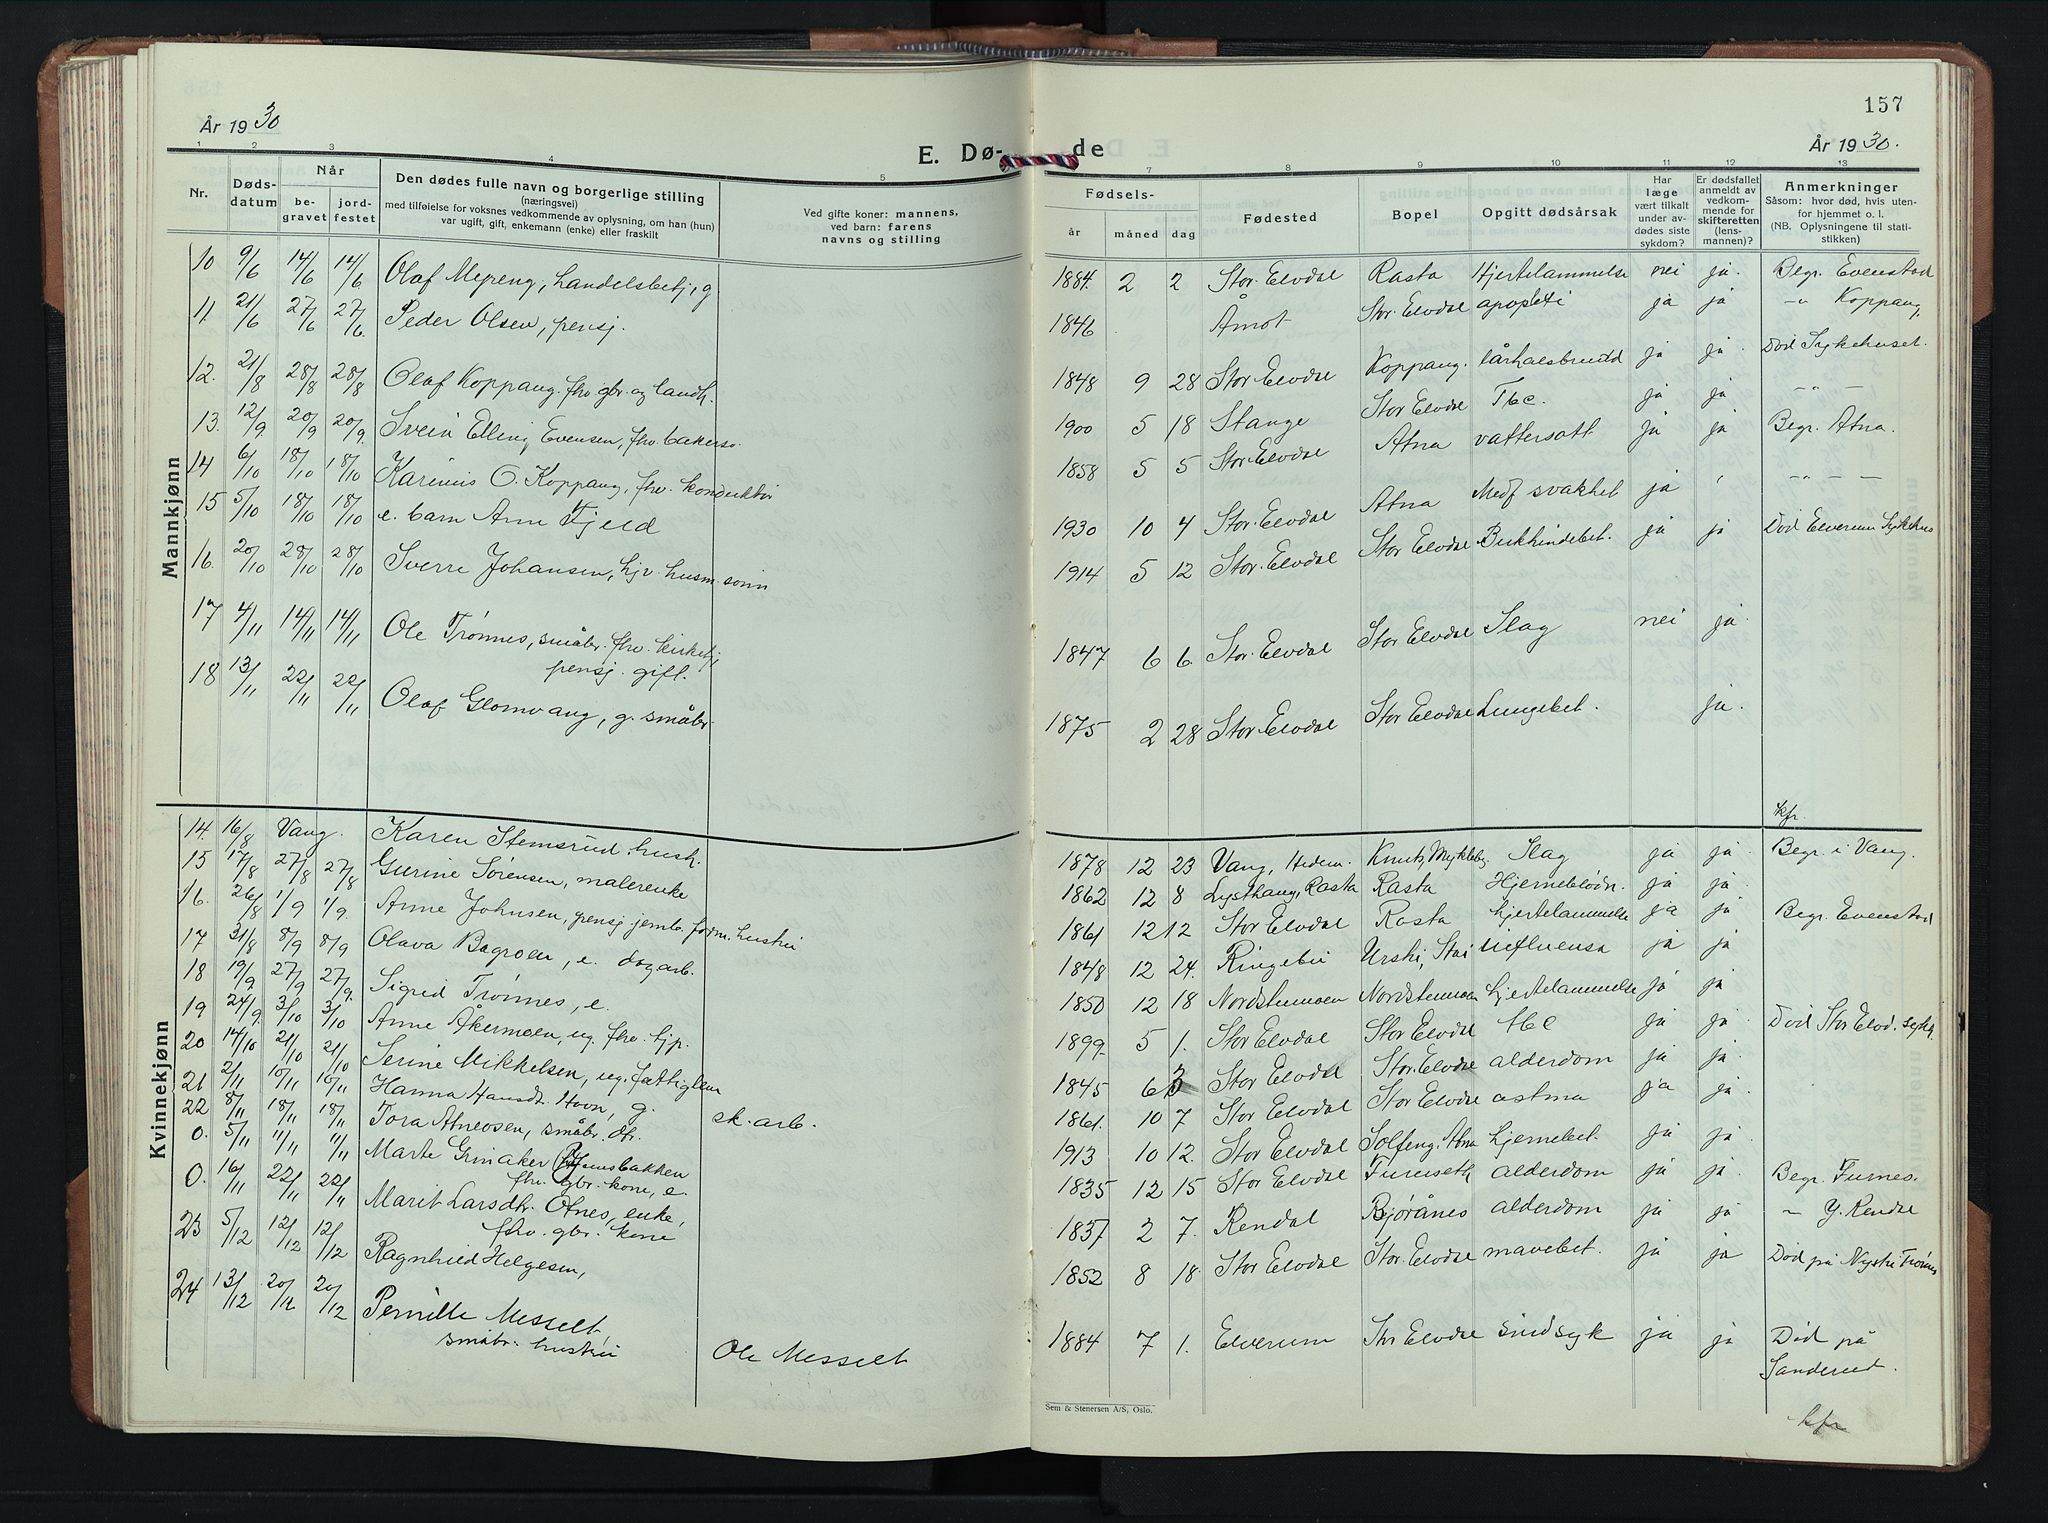 År 1930
157
År 1930.
E. Dø- de
1 2 3 4 5 7 8 9 10 11 12 13
Nr. Døds-datum Når be-gravet jord-festet Den dødes fulle navn og borgerlige stilling (næringsvei) med tilføielse for voksnes vedkommende av oplysning, om han (hun) var ugift, gift, enkemann (enke) eller fraskilt Ved gifte koner: mannens, ved barn: farens navns og stilling Fødsels- år måned dag Fødested Bopel Opgitt dødsårsak Har læge vært tilkalt under av-dødes siste sykdom? Er dødsfallet anmeldt av vedkom-mende for skifteretten (lens-mannen)? Anmerkninger Såsom: hvor død, hvis uten-for hjemmet o. l. (NB. Oplysningene til stati-stikken)
Mannkjønn
10 9/6 14/6 14/6 Olaf Myreng, handelsbetj, g 1884. 2 2 Stor-Elvdal Rasta Hjertelammelse nei ja. Begr. Evenstad
11. 21/6 27/6 27/6 Peder Olsen, pensj. 1846 Åmot Stor-Elvdal apoplexi ja ja -"- Koppang,
12. 21/8 28/8 28/8 Olaf Koppang. fhv gbr. og landh. 1848 9 28 Stor-Elvdal Koppang. lårhalsbrudd ja ja. Død Sykehuset.
13. 12/9. 20/9 20/9. Svein Elling Evensen, fhv. bakersv. 1900 5 18 Stange Stor Elvdal Tbc. ja ja -"-
14 6/10 18/10 18/10 Karinius O. Koppang, fhv. konduktør 1858 5 5 Stor-Elvdal Atna vattersott ja ja Begr. Atna.
15 5/10 18/10 18/10 e. barn Arne Fjeld 1930 10 4 Stor-Elvdal Atna Medf svakhet ja -"- -
16. 20/10 28/10 28/10 Sverre Johansen, hjv. husm. sønn 1914 5 12 Stor-Elvdal Stor Elvdal Bukhindebet. ja ja Død Elverum Sykehus
17 4/11 14/11 14/11 Ole Trønnes, småbr. fhv. kirketj.
pensj. gift. 1847 6 6. Stor-Elvdal Stor Elvdal Slag nei ja.
18 13/11 22/11 22/11 Olaf Glomvang, g. småbr. 1875 2 28 Stor-Elvdal Stor Elvdal Lungebet. ja.
kfr.
Kvinnekjønn
14. 16/8 Vang. Karen Stemsrud. hush. 1878 12 23 Vang, Hedm. Slag ja ja. Begr. i Vang.
15 17/8 27/8 27/8 Gurine Sørensen, malerenke 1862 12 8 Lysthaug, Rasta Rasta Hjerneblødn. ja ja
16. 26/8 1/9 1/9. Anne Johnsen, pensj jernb. form. hustru 1861 12 12 Stor Elvdal Rasta hjertelammelse ja ja Begr. Evenstad
17 31/8 8/9 8/9 Olava Bagroen, e. dagarb. 1848 12 24. Ringebu Stai influensa ja ja
18 19/9. 27/9 27/9. Sigrid Trønnes, e. 1850 12 18 Nordstumoen Nordstumoen hjertelammelse ja ja
19 24/9. 3/10 3/10 Anne Åkermoen, ug. fhv. tjp. 1899. 5 1. Stor Elvdal Stor Elvdal tbc ja ja. Død Stor Elvd. sykeh.
20 14/10 21/10 21/10 Serine Mikkelsen, ug. fattiglem 1845 6 3 Stor Elvdal Stor-Elvdal alderdom ja ja.
21 2/11 10/11 10/11 Hanna Hansdt. Hovn, g. sk. arb. 1861. 10 7 Stor Elvdal Stor Elvdal astma ja ja.
22 8/11 18/11 18/11 Tora Atneosen, småbr. dtr. 1913 10 12. Stor Elvdal Solfeng, Atna hjernebet. ja ja.
0. 5/11 11/11 11/11 Marte Grinaker
fhv. gbr. kone, e. 1835 12 15 Stor Elvdal Furuseth alderdom ja ja. Begr. Furnes.
0. 16/11 22/11 22/11 Marit Larsdtr. Otnes, enke,
fhv. gbr. kone 1837 2 7. Rendal Bjørånes alderdom ja ja -"- Y. Rendal
23 5/12 12/12 12/12 Ragnhild Helgesen, 1852 8 18. Stor Elvdal Stor-Elvdal mavebet. ja ja Død på Trønnes
24 13/12 20/12 20/12 Pernille Messelt
småbr. hustru Ole Messelt 1884 7 1. Elverum Stor Elvdal sindsyk ja ja Død på
Sanderud.
Sem & Stenersen A/S, Oslo.
kfr